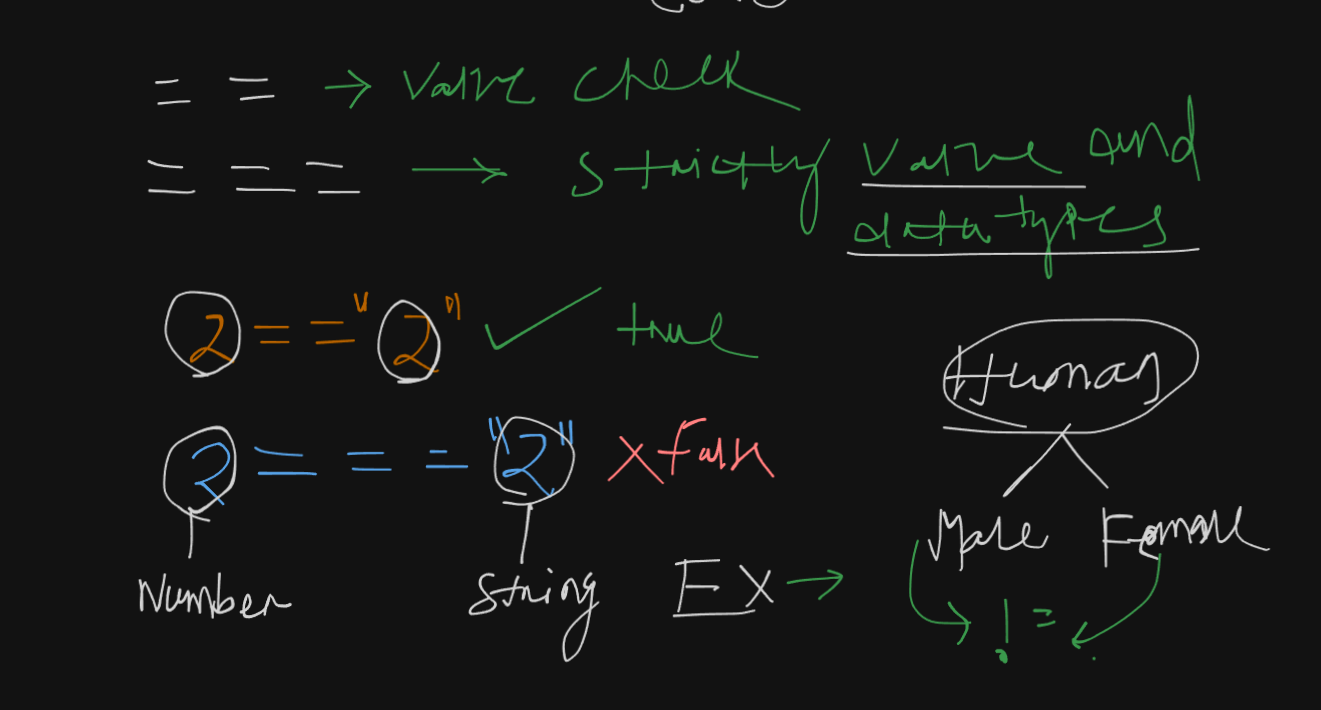 == → Value Check
=== → Strictly Value and
data types
2 == "2" ✓ true
2 === "2" X false
Number
String
Human
Male Female
EX →
!=